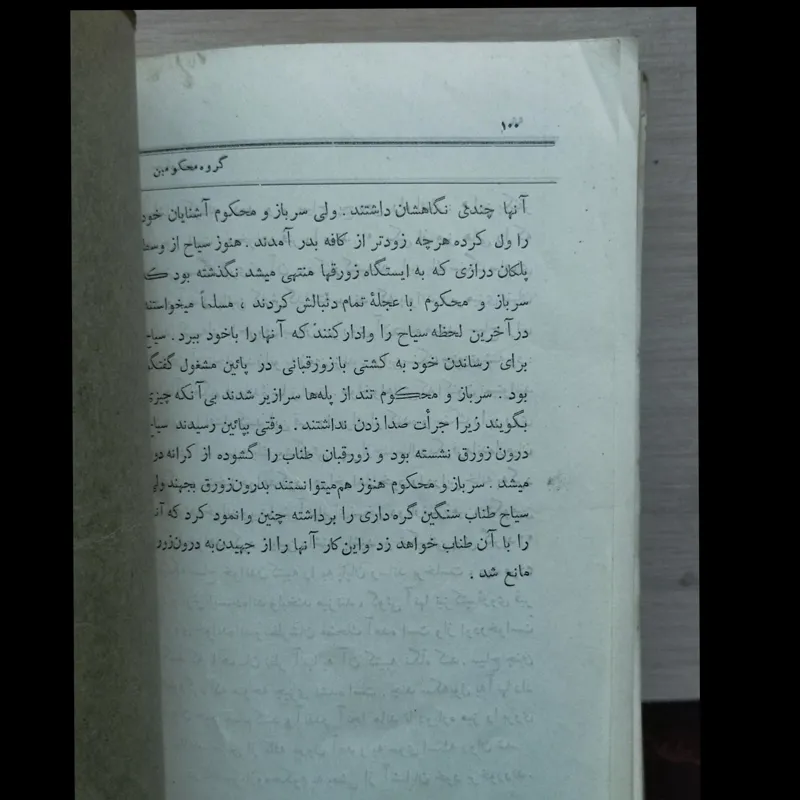 ۱۰۰
گروه محکومین
آنها چندی نگاهشان داشتند . ولی سرباز و محکوم آشنایان خود
را ول کرده هرچه زودتر از کافه بدر آمدند . هنوز سیاح از وسط
پلکان درازی که به ایستگاه زورقها منتهی میشد نگذشته بود که
سرباز و محکوم با عجلهٔ تمام دنبالش کردند ، مسلماً میخواستند
درآخرین لحظه سیاح را وادارکنند که آنها را باخود ببرد . سیاح
برای رساندن خود به کشتی با زورقبانی در پائین مشغول گفتگو
بود . سرباز و محکوم تند از پله‌ها سرازیر شدند بی‌آنکه چیزی
بگویند زیرا جرأت صدا زدن نداشتند . وقتی بپائین رسیدند سیاح
درون زورق نشسته بود و زورقبان طناب را گشوده از کرانه دور
میشد . سرباز و محکوم هنوز هم‌میتوانستند بدرون‌زورق بجهند ولی
سیاح طناب سنگین گره‌داری را برداشته چنین وانمود کرد که آنها
را با آن طناب خواهد زد واین‌کار آنها را از جهیدن‌به درون‌زورق
مانع شد .